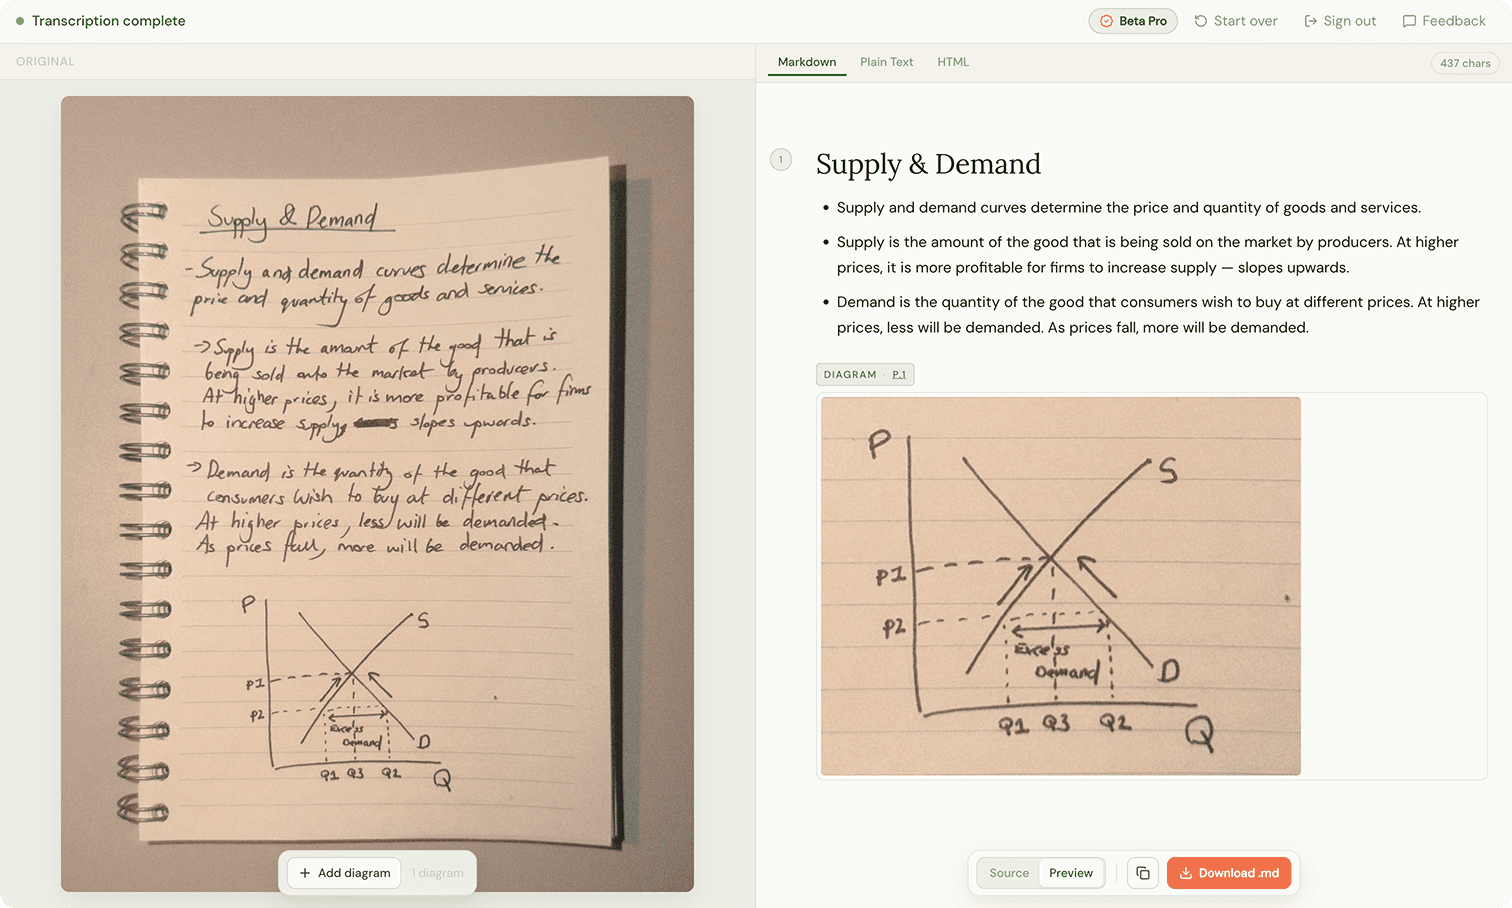 Transcription complete
Beta Pro
Start over
Sign out
Feedback
ORIGINAL
Supply & Demand
- Supply and demand curves determine the
price and quantity of goods and services.
→ Supply is the amount of the good that is
being sold onto the market by producers.
At higher prices, it is more profitable for firms
to increase supply, slopes upwards.
→ Demand is the quantity of the good that
consumers wish to buy at different prices.
At higher prices, less will be demanded.
As prices fall, more will be demanded.
P
S
P1
P2
Excess
Demand
D
Q1 Q3 Q2
Q
+ Add diagram
1 diagram
Markdown
Plain Text
HTML
437 chars
1
Supply & Demand
• Supply and demand curves determine the price and quantity of goods and services.
• Supply is the amount of the good that is being sold on the market by producers. At higher
prices, it is more profitable for firms to increase supply — slopes upwards.
• Demand is the quantity of the good that consumers wish to buy at different prices. At higher
prices, less will be demanded. As prices fall, more will be demanded.
DIAGRAM · P.1
P
S
P1
P2
Excess
Demand
D
Q1 Q3 Q2
Q
Source
Preview
Download .md